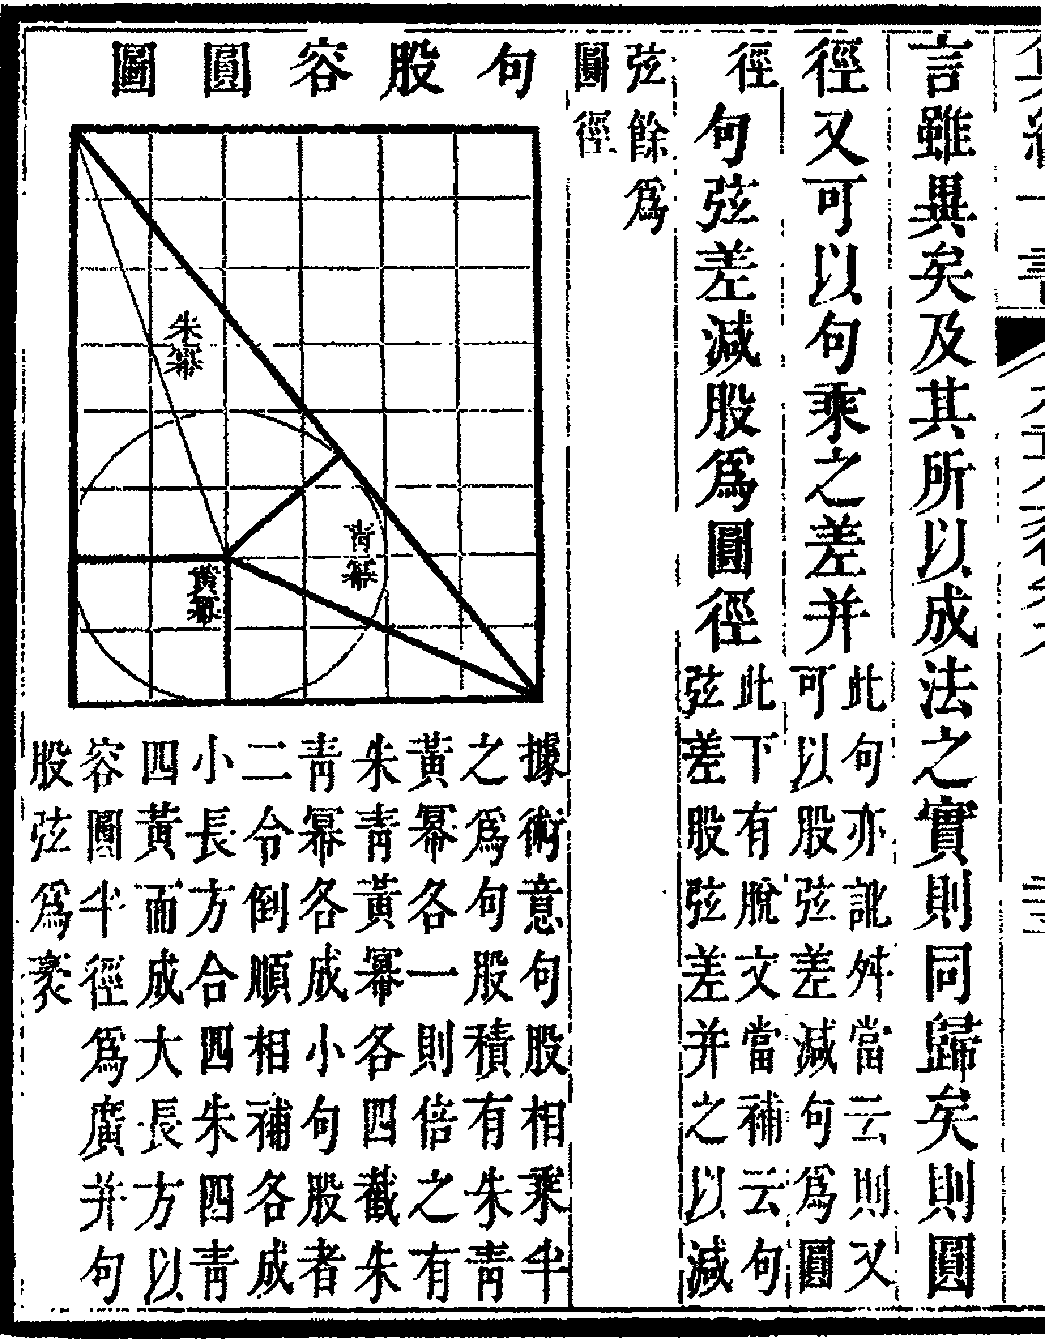 言雖異矣及其所以成法之實則同歸矣則圓
徑又可以句乘之差并
此句亦訛舛當云則又
可以股弦差減句爲圓
徑
句弦差減股爲圓徑
此下有脫文當補云句
弦差股弦差并之以減
弦餘爲
圓徑
句股容圓圖
朱冪
青冪
黃冪
據術意句股相乘半
之爲句股積有朱青
黃冪各一則倍之有
朱青黃冪各四截朱
青冪各成小句股者
二令倒順相補各成
小長方合四朱四青
四黃而成大長方以
容圓半徑爲廣并句
股弦爲袤